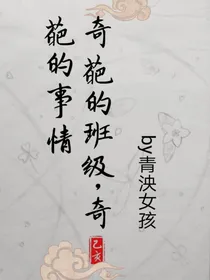 奇葩的班级，奇
葩的事情
by青泱女孩
己亥